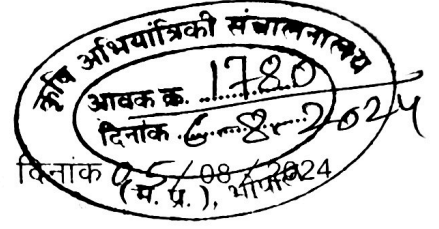 कृषि अभियांत्रिकी संचालनालय
आवक क्र. 1780
दिनांक 6-8-2024
दिनांक 05/08/2024
(म. प्र.), भोपाल